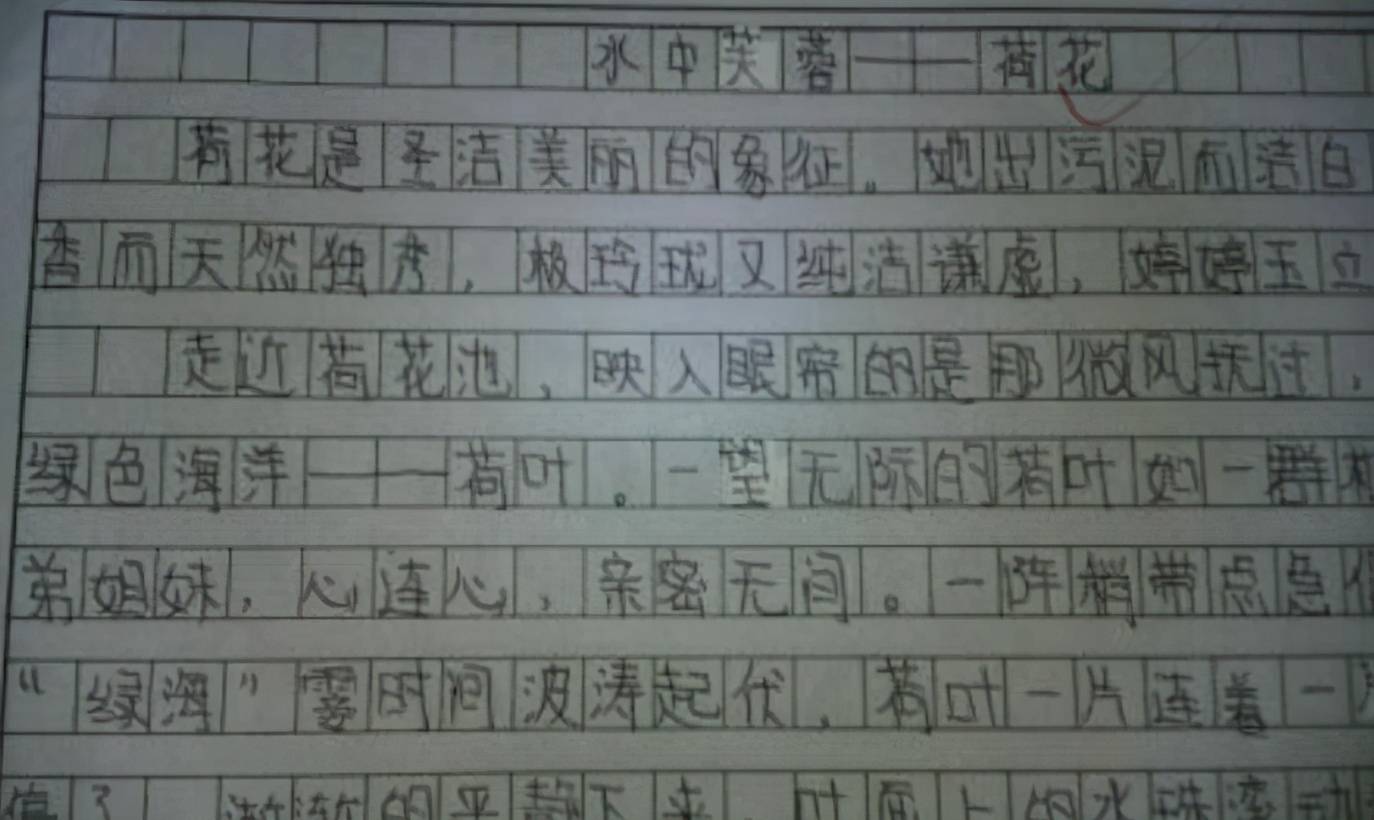 水中芙蓉——荷花
荷花是圣洁美丽的象征。她出污泥而洁白
香而天然独秀，极玲珑又纯洁谦虚，婷婷玉立
走近荷花池，映入眼帘的是那微风抚过，
绿色海洋——荷叶。一望无际的荷叶如一群
弟姐妹，心连心，亲密无间。一阵稍带点急
“绿海”霎时间波涛起伏，荷叶一片连着一
停了，渐渐的平静下来，叶面上的水珠滚动